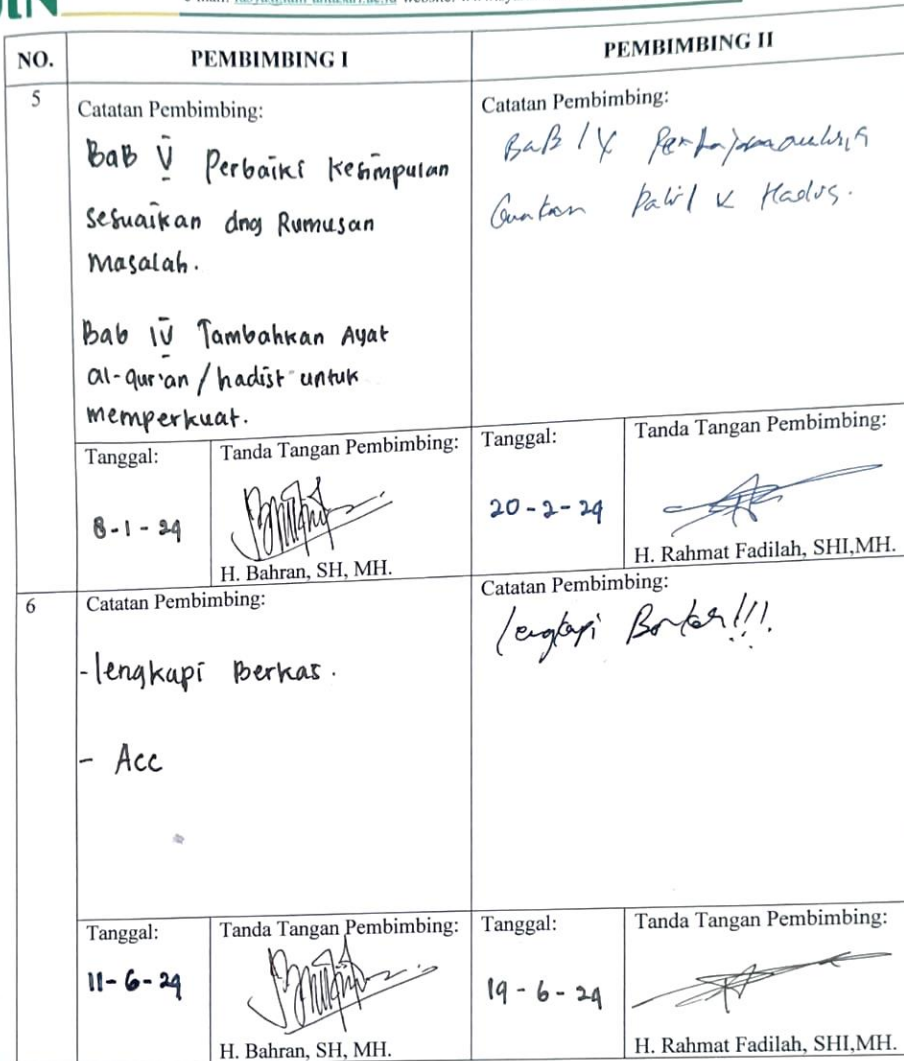 NO.
PEMBIMBING I
PEMBIMBING II
5
Catatan Pembimbing:
Bab V Perbaiki Kesimpulan
sesuaikan dng Rumusan
Masalah.
Bab IV Tambahkan Ayat
al-qur'an / hadist untuk
memperkuat.
Catatan Pembimbing:
BaB IV
Tanggal:
8-1-24
Tanda Tangan Pembimbing:
H. Bahran, SH, MH.
Tanggal:
20-2-24
Tanda Tangan Pembimbing:
H. Rahmat Fadilah, SHI,MH.
6
Catatan Pembimbing:
-lengkapi Berkas.
- Acc
Catatan Pembimbing:
lengkapi Berkas!!!
Tanggal:
11-6-24
Tanda Tangan Pembimbing:
H. Bahran, SH, MH.
Tanggal:
19-6-24
Tanda Tangan Pembimbing:
H. Rahmat Fadilah, SHI,MH.